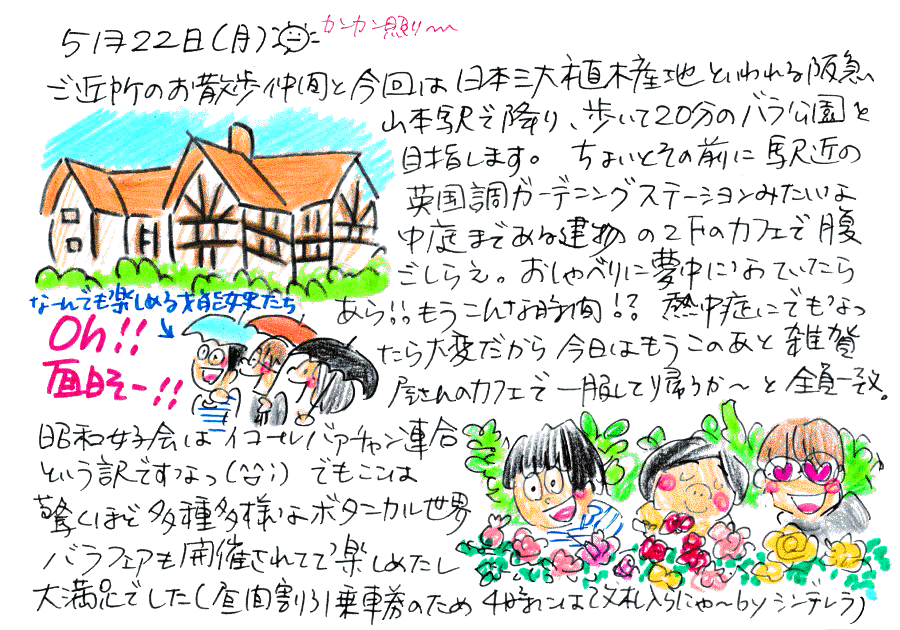 5月22日(月)
カンカン照り〜
ご近所のお散歩仲間と今回は日本三大植木産地といわれる阪急
山本駅で降り、歩いて20分のバラ公園を
目指します。 ちょいとその前に駅近の
英国調ガーデニングステーションみたいな
中庭まである建物の2Fのカフェで腹
ごしらえ。おしゃべりに夢中になっていたら
あら!!もうこんな時間!? 熱中症にでもなっ
たら大変だから今日はもうこのあと雑貨
屋さんのカフェで一服して帰ろうか〜と全員一致。
なーんでも楽しめる才能淑女たち
Oh!!
面白そー!!
昭和女子会はイコールバアチャン連合
という訳ですなっ(^^;) でもここは
驚くほど多種多様なボタニカル世界
バラフェアも開催されてて楽しめたし
大満足でした(昼間割引乗車券のため4時には改札入らにゃ〜byシンデレラ)